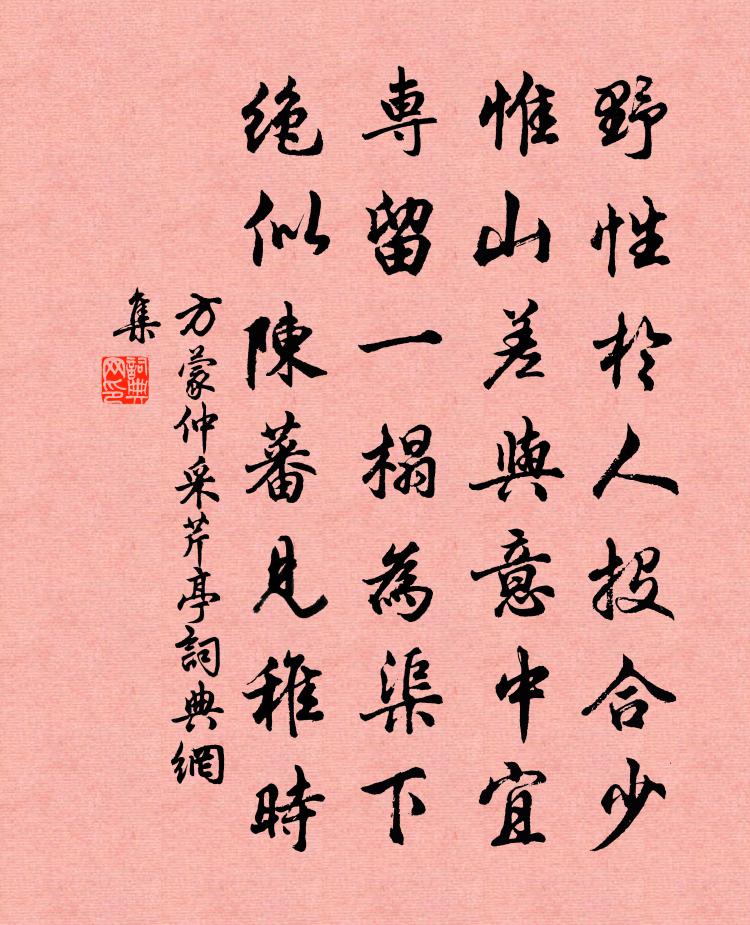 野性於人投合少
惟山差與意中宜
専留一榻為渠下
绝似陳蕃見稚時
方蒙仲采芹亭詞典網
集
詞典
网印